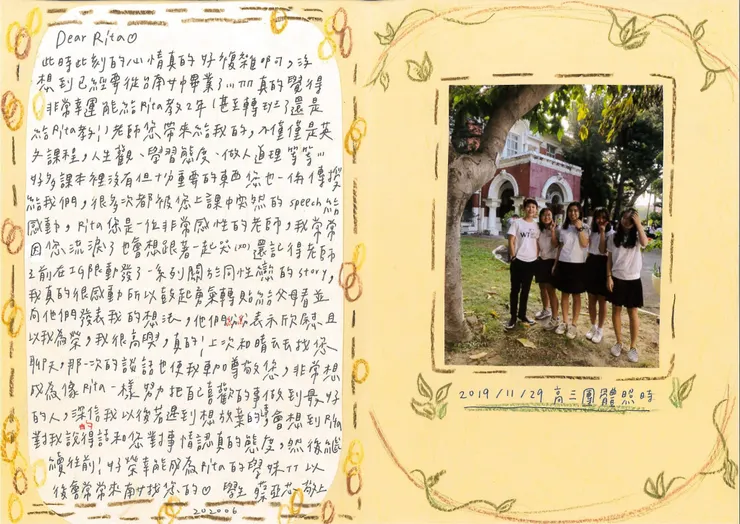 Dear Rita♡
此時此刻的心情真的好複雜啊,沒
想到已經要從台南女中畢業了,,,TTT真的覺得
非常幸運能給Rita教2年(甚至轉班了還是
給Rita教)!老師您帶來給我的,不僅僅是英
文課程,人生觀、學習態度、做人道理等等,,,
好多課本裡沒有但十分重要的東西您也一併傳授
給我們,很多次都被您上課中突然的speech給
感動,Rita您是一位非常感性的老師,我常常
因您流淚了也會想跟著一起哭(xx)還記得老師
之前在IG限動發了一系列關於同性戀的story,
我真的很感動所以鼓起勇氣轉貼給父母看並
向他們發表我的想法,他們表示欣慰且
以我為榮,我很高興,真的!上次和晴去找您
聊天,那一次的談話也使我更加尊敬您,非常想
成為像Rita一樣努力把自己喜歡的事做到最好
的人,深信我以後若遇到想放棄的事會想到Rita
對我說的話和您對事情認真的態度,然後繼
續往前!好榮幸能成為Rita的學妹TT以
後會常常來南女找您的♡ 學生 蔡亞芯 敬上
202006
2019/11/29 高三團體照時